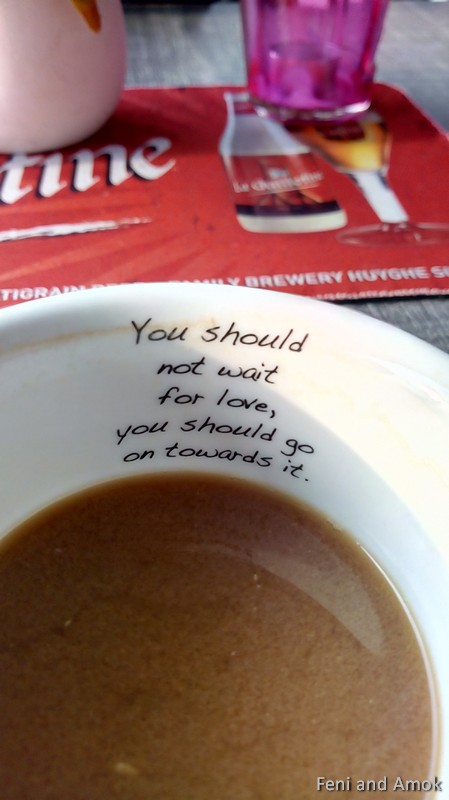 tine
TIGRAIN
BREWERY HUYGHE
You should
not wait
for love,
you should go
on towards it.
Feni and Amok